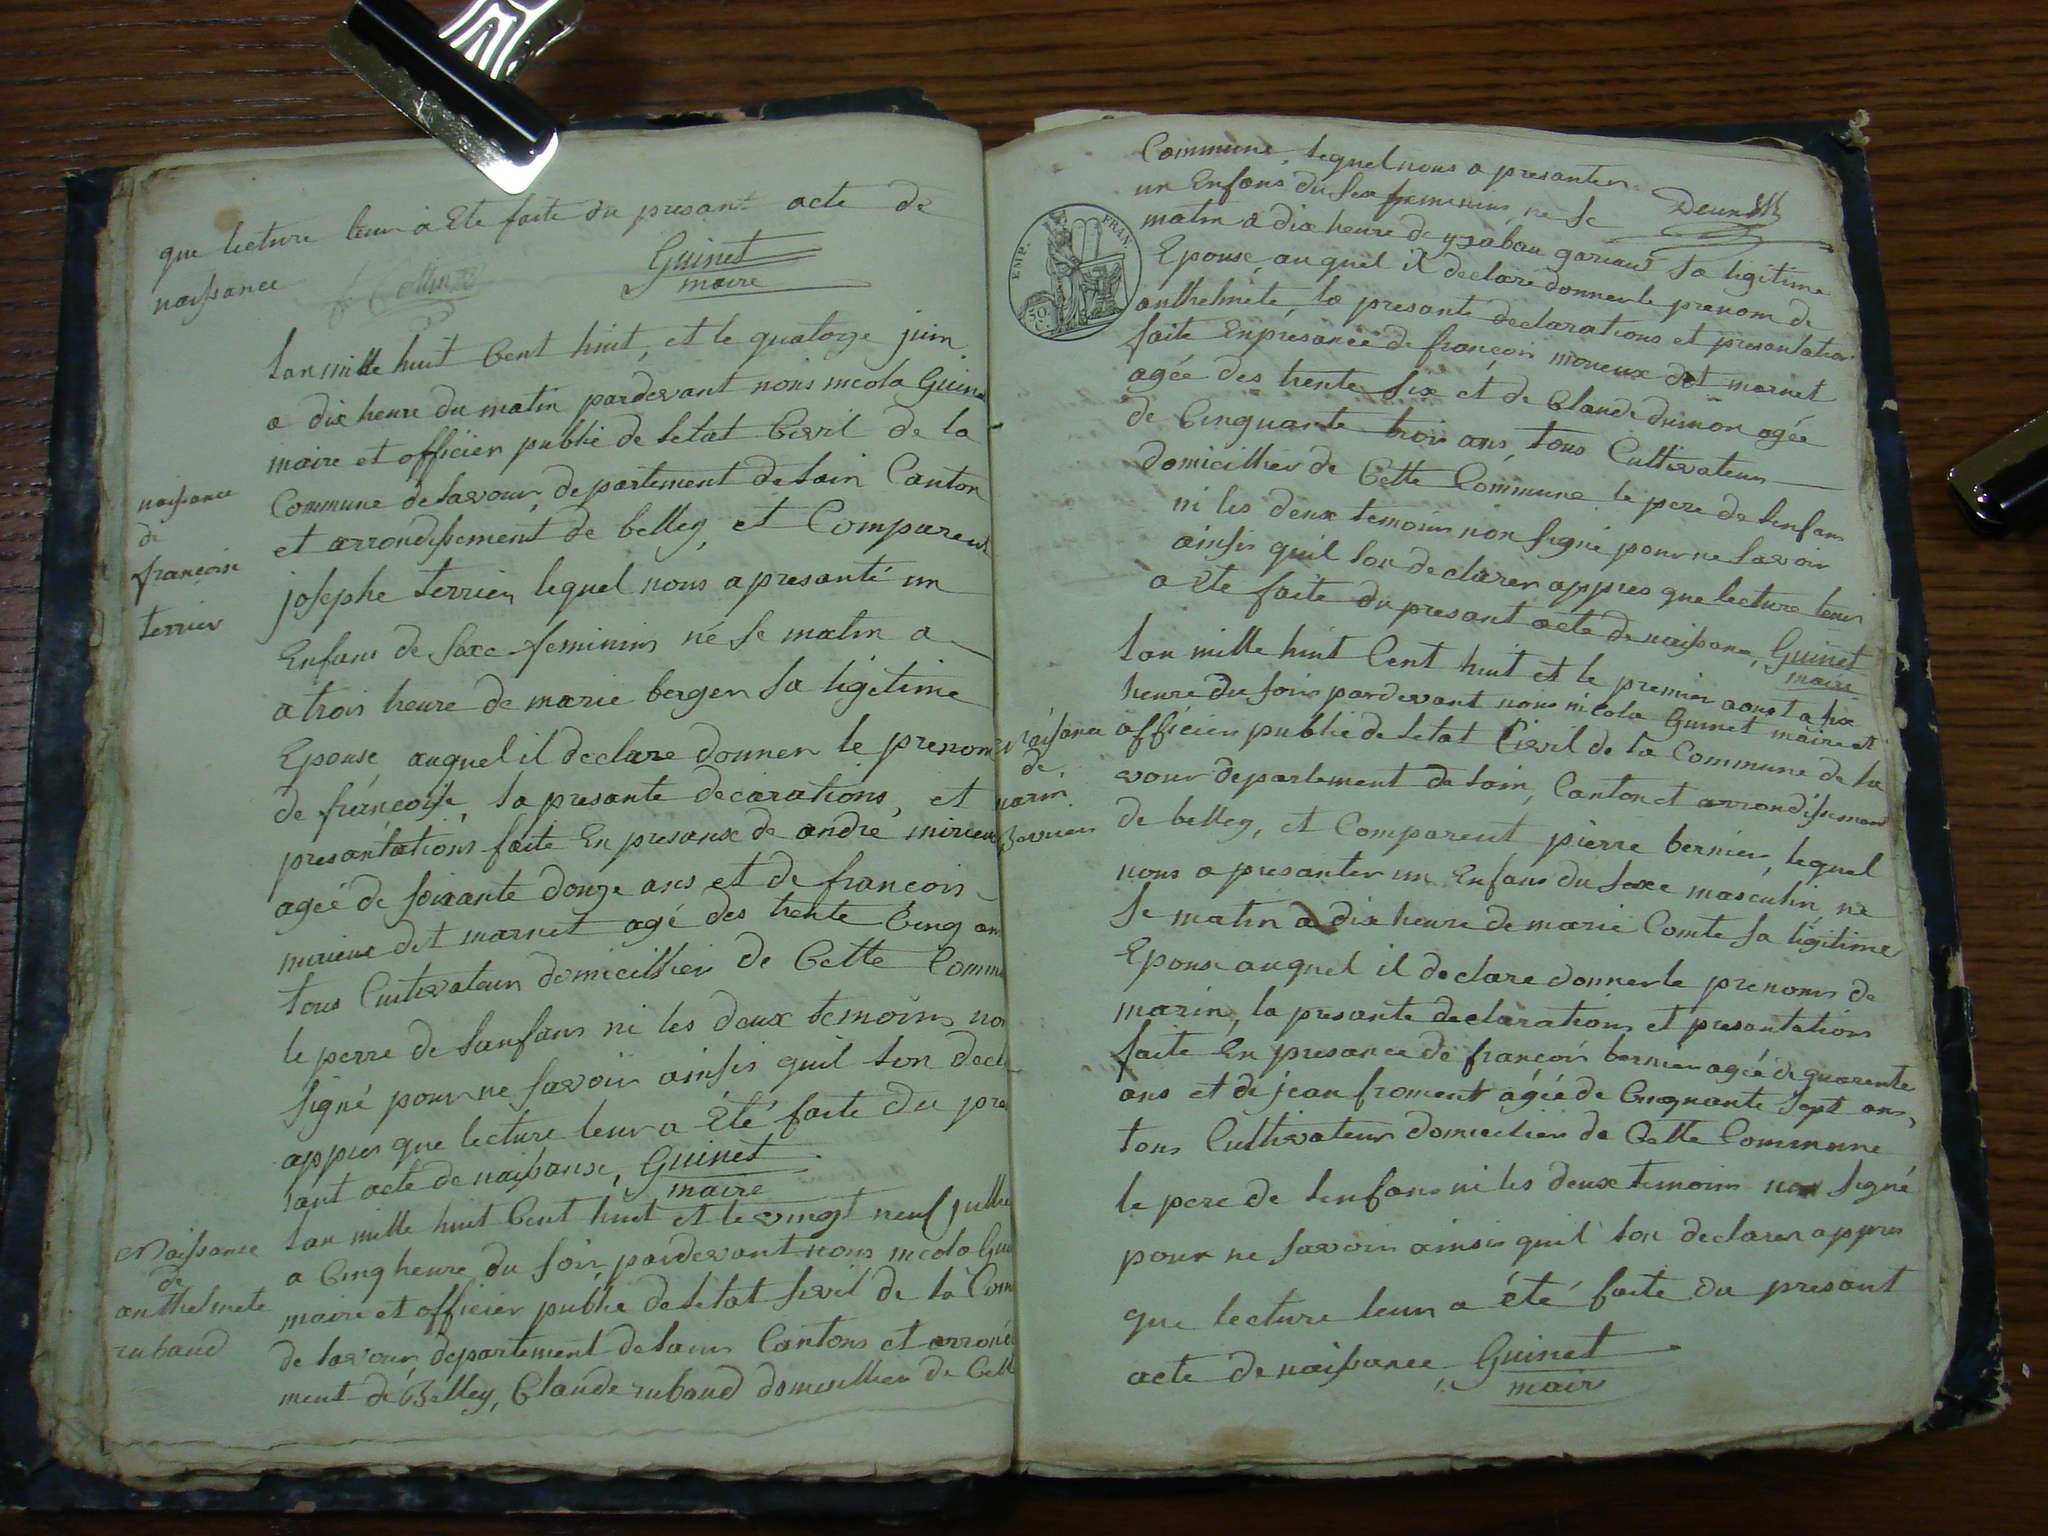 que lecture leur a Ete faite du presant acte de
naissance
Guinet
maire
naissance
de
françoise
terrier
Lan mille huit Cent huit, et le quatorze juin
a dix heure du matin pardevant nous nicola Guine
maire et officier public de letat Civil de la
Commune de lavour, departement de lain Canton
et arrondissement de belley, et Compareut
josephe terrier lequel nous a presanté un
Enfans de saxe feminins né se matin a
a trois heure de marie berger sa ligitime
Epouse auquel il declare donner le prenom
de françoise, la presante decarations, et
presantations faite En presanse de andré mirieu
ageé de soixante douze ans et de françois
mirieue det marnet agé des trente Cinq an
tous Cultivateur domicillier de Cette Comm
le perre de lanfans ni les deux temoins no
signé pour ne savoir ainsis quil lon decl
appres que lecture leur a Été faite du pre
sant acte de naisanse, Guinet
maire
Naissance
de
anthelmete
rubaud
Lan mille huit Cent huit et le vingt neuf jullie
a Cinq heure du soir, pardevant nous nicola Gui
maire et officier public de letat sivil de la Com
de lavour, departement de lain Cantons et arrond
ment de Belley, Claude rubaud domesillier de Cett
Commune, lequel nous a presanter
un Enfans du sex feminins ne se
matin a dix heure de ysabau gariaud sa ligitime
Epouse, auquel il declare donner le prenom de
anthelmete, la presante declarations et presantation
faite En presance de françois mirieux det marnet
agée des trente six et de Claude dumon agée
de Cinquante trois ans, tous Cultivateur
domicillier de Cette Commune le pere de lenfans
ni les deux temoins non signé pour ne savoir
ainsis quil lon declarer appres que lecture leur
a Ete faite du presant acte de naissance, Guinet
maire
EMP. FRAN.
50
C.
Naisance
de
marin
Bernier
Lan mille huit Cent huit et le premier aoust a six
heure du soir pardevant nous nicola Guinet maire et
officier public de letat Civil de la Commune de la
vour departement de lain, Canton et arrondissement
de belley, et Comparent pierre bernier, lequel
nous a presanter un Enfans du sexe masculin, ne
se matin a dix heure de marie Comte sa ligitime
Epouse auquel il declare donner le prenoms de
marin, la presante declarations et presantations
faite En presance de françois bernier agée de quarente
ans et de jean froment agée de Cinquante sept ans,
tous Cultivateur domicilier de Cette Commune
le pere de lenfans ni les deux temoins non signé
pour ne savoir ainsis quil lon declarer appres
que lecture leur a été faite du presant
acte de naissance, Guinet
mair